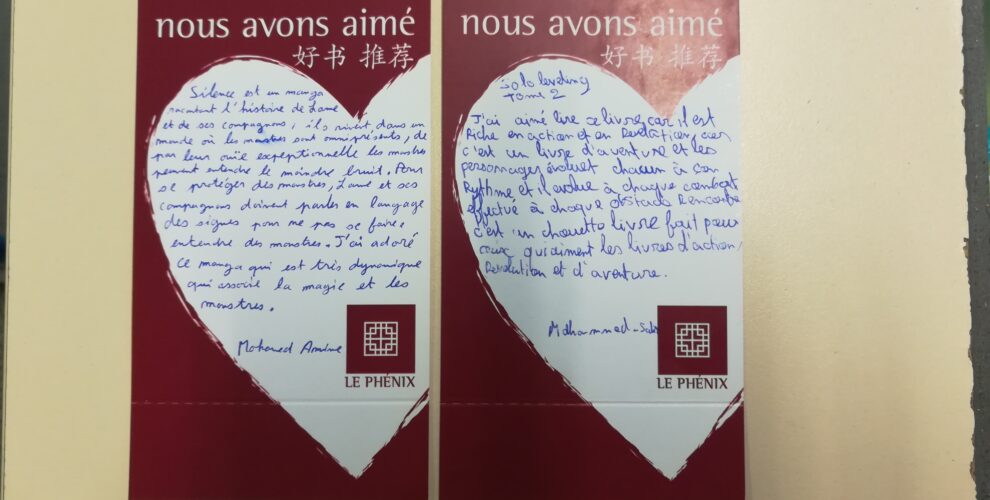 nous avons aimé
好书 推荐
Silence est un manga
racontant l'histoire de Lame
et de ses compagnons, ils vivent dans un
monde où les monstres sont omniprésents, de
par leur ouïe expeptionnelle les monstres
peuvent entendre le moindre bruit. Pour
se protéger des monstres, Lame et ses
compagnons doivent parler en langage
des signes pour ne pas se faire
entendre des monstres. J'ai adoré
ce manga qui est très dynamique
qui associe la magie et les
monstres.
Mohamed Amine
LE PHÉNIX
nous avons aimé
好书 推荐
Solo leveling
Tome 2
J'ai aimé lire ce livre car il est
Riche en action et en Revolution, car
c'est un livre d'aventure et les
personnages évoluet chacun à son
Rythme et il évolue à chaque combat
effectué à chaque obstacle Rencontre
c'est un chouette livre fait pour
ceux qui aiment les livres d'action,
Revolution et d'aventure.
LE PHÉNIX